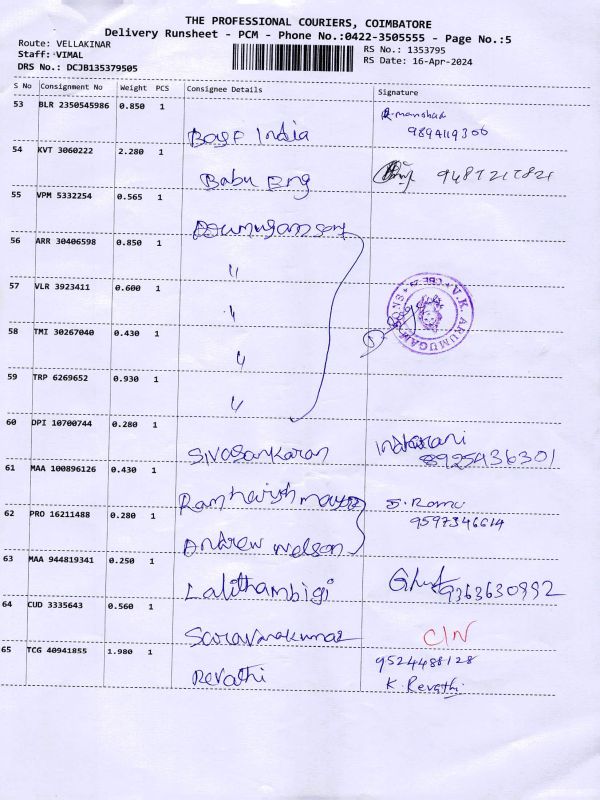 THE PROFESSIONAL COURIERS, COIMBATORE
Delivery Runsheet - PCM - Phone No.:0422-3505555 - Page No.:5
Route: VELLAKINAR
Staff: VIMAL
DRS No.: DCJB135379505
RS No.: 1353795
RS Date: 16-Apr-2024
S No Consignment No Weight PCS Consignee Details Signature
53 BLR 2350545986 0.850 1
R. manohar
9894119306
India
54 KVT 3060222 2.280 1
Babu Eng
55 VPM 5332254 0.565 1
56 ARR 30406598 0.850 1
"
57 VLR 3923411 0.600 1
"
V.K. ARUMUGAM
58 TMI 30267040 0.430 1
"
59 TRP 6269652 0.930 1
"
60 DPI 10700744 0.280 1
Sivasankaran
8925436301
61 MAA 100896126 0.430 1
S. Ramu
9597346614
62 PRO 16211488 0.280 1
Andrew nelson
63 MAA 944819341 0.250 1
Lalithambigi
9363630992
64 CUD 3335643 0.560 1
Saravanakumar
C/N
65 TCG 40941855 1.980 1
Revathi
9524488128
K. Revathi